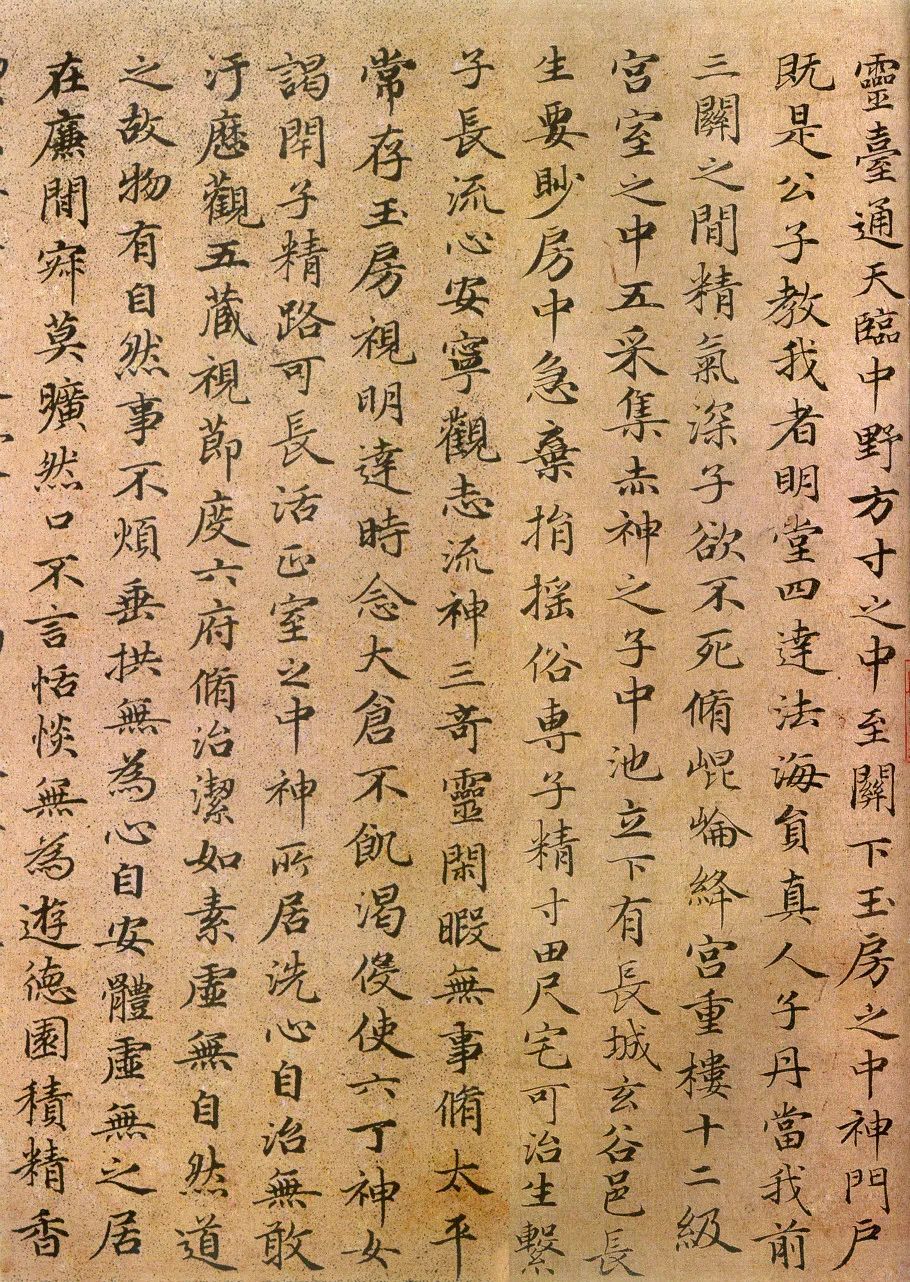 靈臺通天臨中野方寸之中至關下玉房之中神門戶
既是公子教我者明堂四達法海負真人子丹當我前
三關之閒精氣深子欲不死脩崐崘絳宮重樓十二級
宮室之中五采集赤神之子中池立下有長城玄谷邑長
生要眇房中急棄捐搖俗専子精寸田尺宅可治生繫
子長流心安寧觀志流神三奇靈閑暇無事脩太平
常存玉房視明達時念大倉不飢渴伇使六丁神女
謁閉子精路可長活正室之中神所居洗心自治無敢
汙歷觀五藏視節度六府脩治潔如素虛無自然道
之故物有自然事不煩垂拱無為心自安體虛無之居
在廉間寂莫曠然口不言恬惔無為遊德園積精香